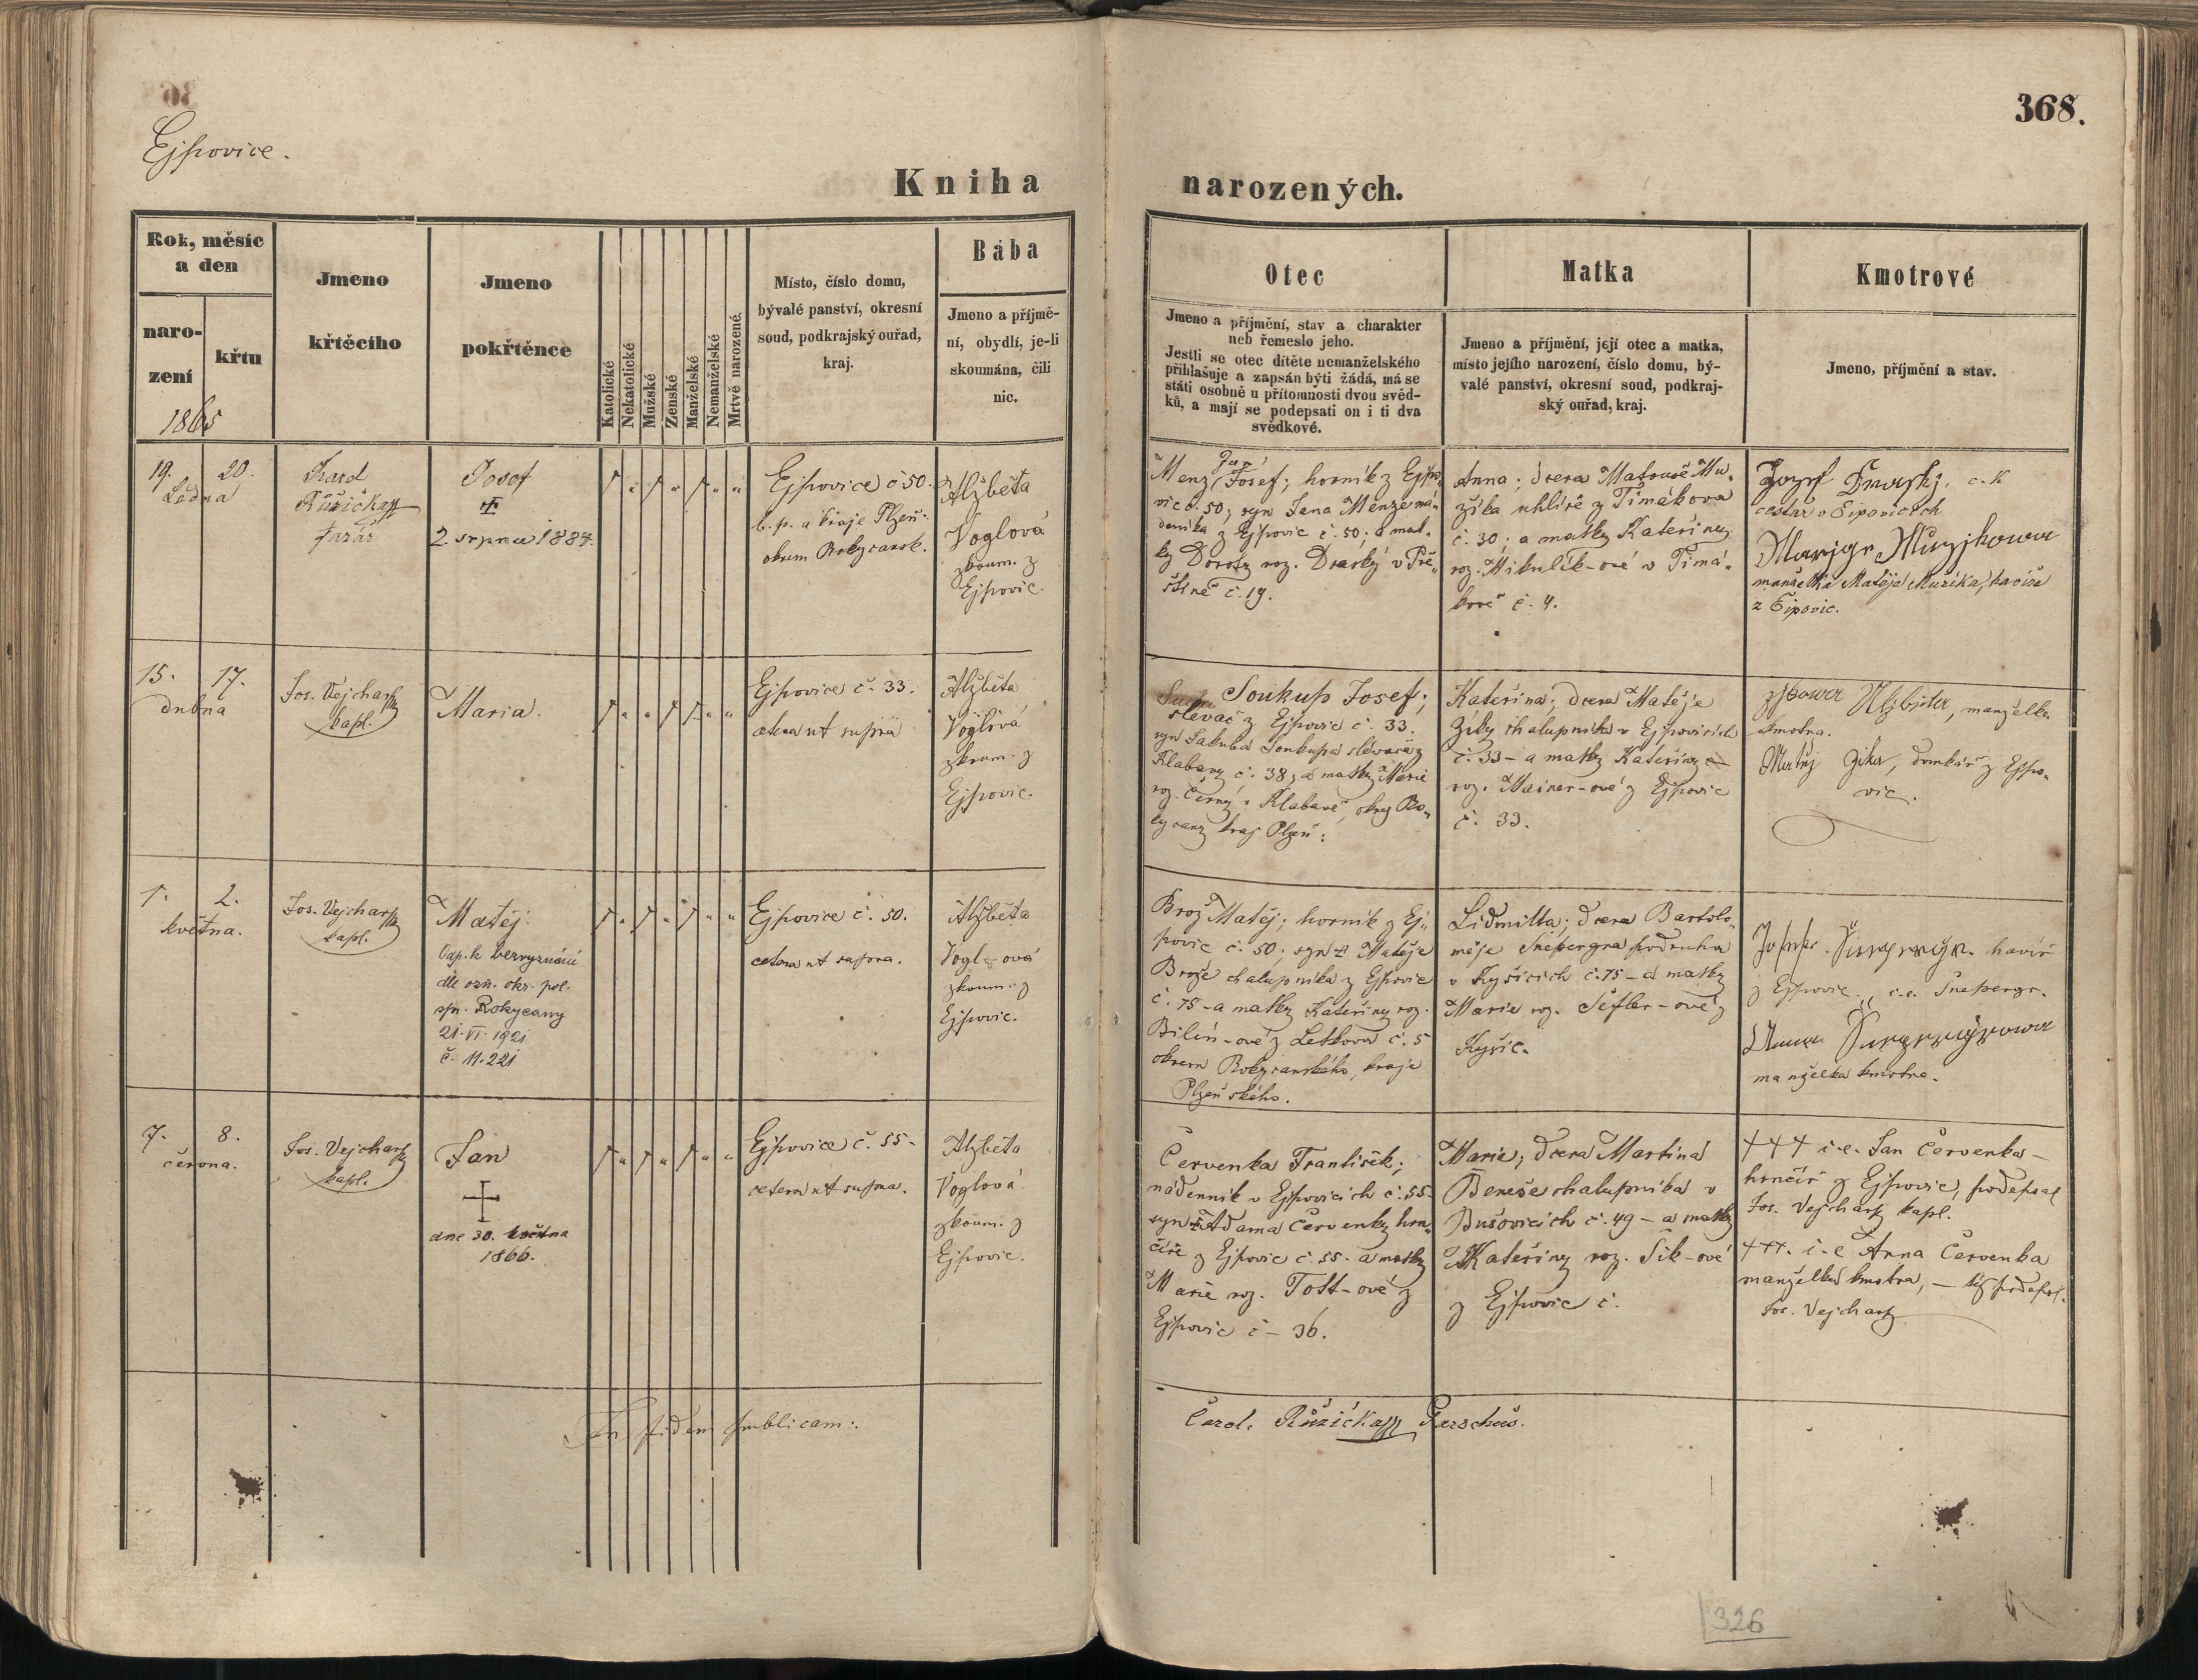 368.
Ejpovice.
Kniha narozených.
Rok, měsíc
a den
naro-
zení
křtu
1865
Jmeno
křtěcího
Jmeno
pokřtěnce
Katolické
Nekatolické
Mužské
Ženské
Manželské
Nemanželské
Mrtvě narozené.
Místo, číslo domu,
bývalé panství, okresní
soud, podkrajský ouřad,
kraj.
Bába
Jmeno a příjmě-
ní, obydlí, je-li
skoumána, čili
nic.
Otec
Jmeno a příjmění, stav a charakter
neb řemeslo jeho.
Jestli se otec dítěte nemanželského
přihlašuje a zapsán býti žádá, má se
státi osobně u přítomnosti dvou svěd-
ků, a mají se podepsati on i ti dva
svědkové.
Matka
Jmeno a příjmění, její otec a matka,
místo jejího narození, číslo domu, bý-
valé panství, okresní soud, podkraj-
ský ouřad, kraj.
Kmotrové
Jmeno, příjmění a stav.
19. 20.
Ledna
Karel
Růžička
farář
Josef
2. srpna 1884.
Ejpovice č 50.
b. p. a kraje Plzeň:
okresu Rokycansk.
Alžběta
Voglová
zkoum. z
Ejpovic.
Menz Josef; horník z Ejpo-
vic č. 50; syn Jana Menze ná-
deníka z Ejpovic č. 50; a mat-
ky Doroty roz. Draský v Tře-
štné č. 19.
Anna; dcera Matouše Mu-
zíka uhlíře z Timákova
č. 30; a matky Kateřiny
roz. Mikulík-ové v Timá-
kově č. 4.
Jozef c. k.
cestář v Eipovicích
manželka Matěje Muzíka, havíře
z Eipovic.
15. 17.
dubna
Jos. Vejcharský
kapl.
Maria.
Ejpovice č. 33.
cetera ut supra
Alžběta
Voglová
zkoum. z
Ejpovic.
Soukup Josef;
slevač z Ejpovic č. 33.
syn Jakuba Soukupa slevače z
Klabavy č. 38; a matky Marie
roz. Černý v Klabavě, okres Ro-
kycany kraj Plzeň:
Kateřina; dcera Matěje
Ziky chalupníka v Ejpovicích
č. 33 - a matky Kateřiny
roz. Mainer-ové z Ejpovic
č. 33.
Alžbieta, manželka
kmotra.
Matěj Zika, domkář z Ejpo-
vic.
1. 2.
května.
Jos. Vejcharský
kapl.
Matěj.
Odp. k bezvyznání
dle ozn. okr. pol.
spr. Rokycany
21. VI. 1921
č. 11.221
Ejpovice č. 50.
cetera ut supra.
Alžběta
Vogl-ová
zkoum. z
Ejpovic.
Brož Matěj; horník z Ej-
povic č. 50; syn Matěje
Brože chalupníka z Ejpovic
č. 75 - a matky Kateřiny roz.
Bílén-ové z Letkova č. 5
okresu Rokycanského, kraje
Plzeňského.
Lidmilla; dcera Bartolo-
měje Šnepergra podruha
v Kyšicích č. 75 - a matky
Marie roz. Šefler-ové z
Kyšic.
havíř
z Ejpovic. i.e. Šneperger.
Anna
manželka kmotra.
7. 8.
června.
Jos. Vejcharský
kapl.
Jan
dne 30. května
1866.
Ejpovice č. 55.
cetera ut supra.
Alžběta
Voglová
zkoum. z
Ejpovic.
Červenka František;
nádenník v Ejpovicích č. 55.
syn Adama Červenky hrn-
číře z Ejpovic č. 55. a matky
Marie roz. Tott-ové z
Ejpovic č - 36.
Marie; dcera Martina
Beneše chalupníka v
Bušovicích č. 49 - a matky
Kateřiny roz. Šik-ové
z Ejpovic č.
+++ i.e. Jan Červenka -
hrnčíř z Ejpovic, podepsal
Jos. Vejcharský kapl.
+++. i.e. Anna Červenka
manželka kmotra, - též podepsl.
Jos. Vejcharský
In fidem publicam:
Carol. Růžička Parochus.
326